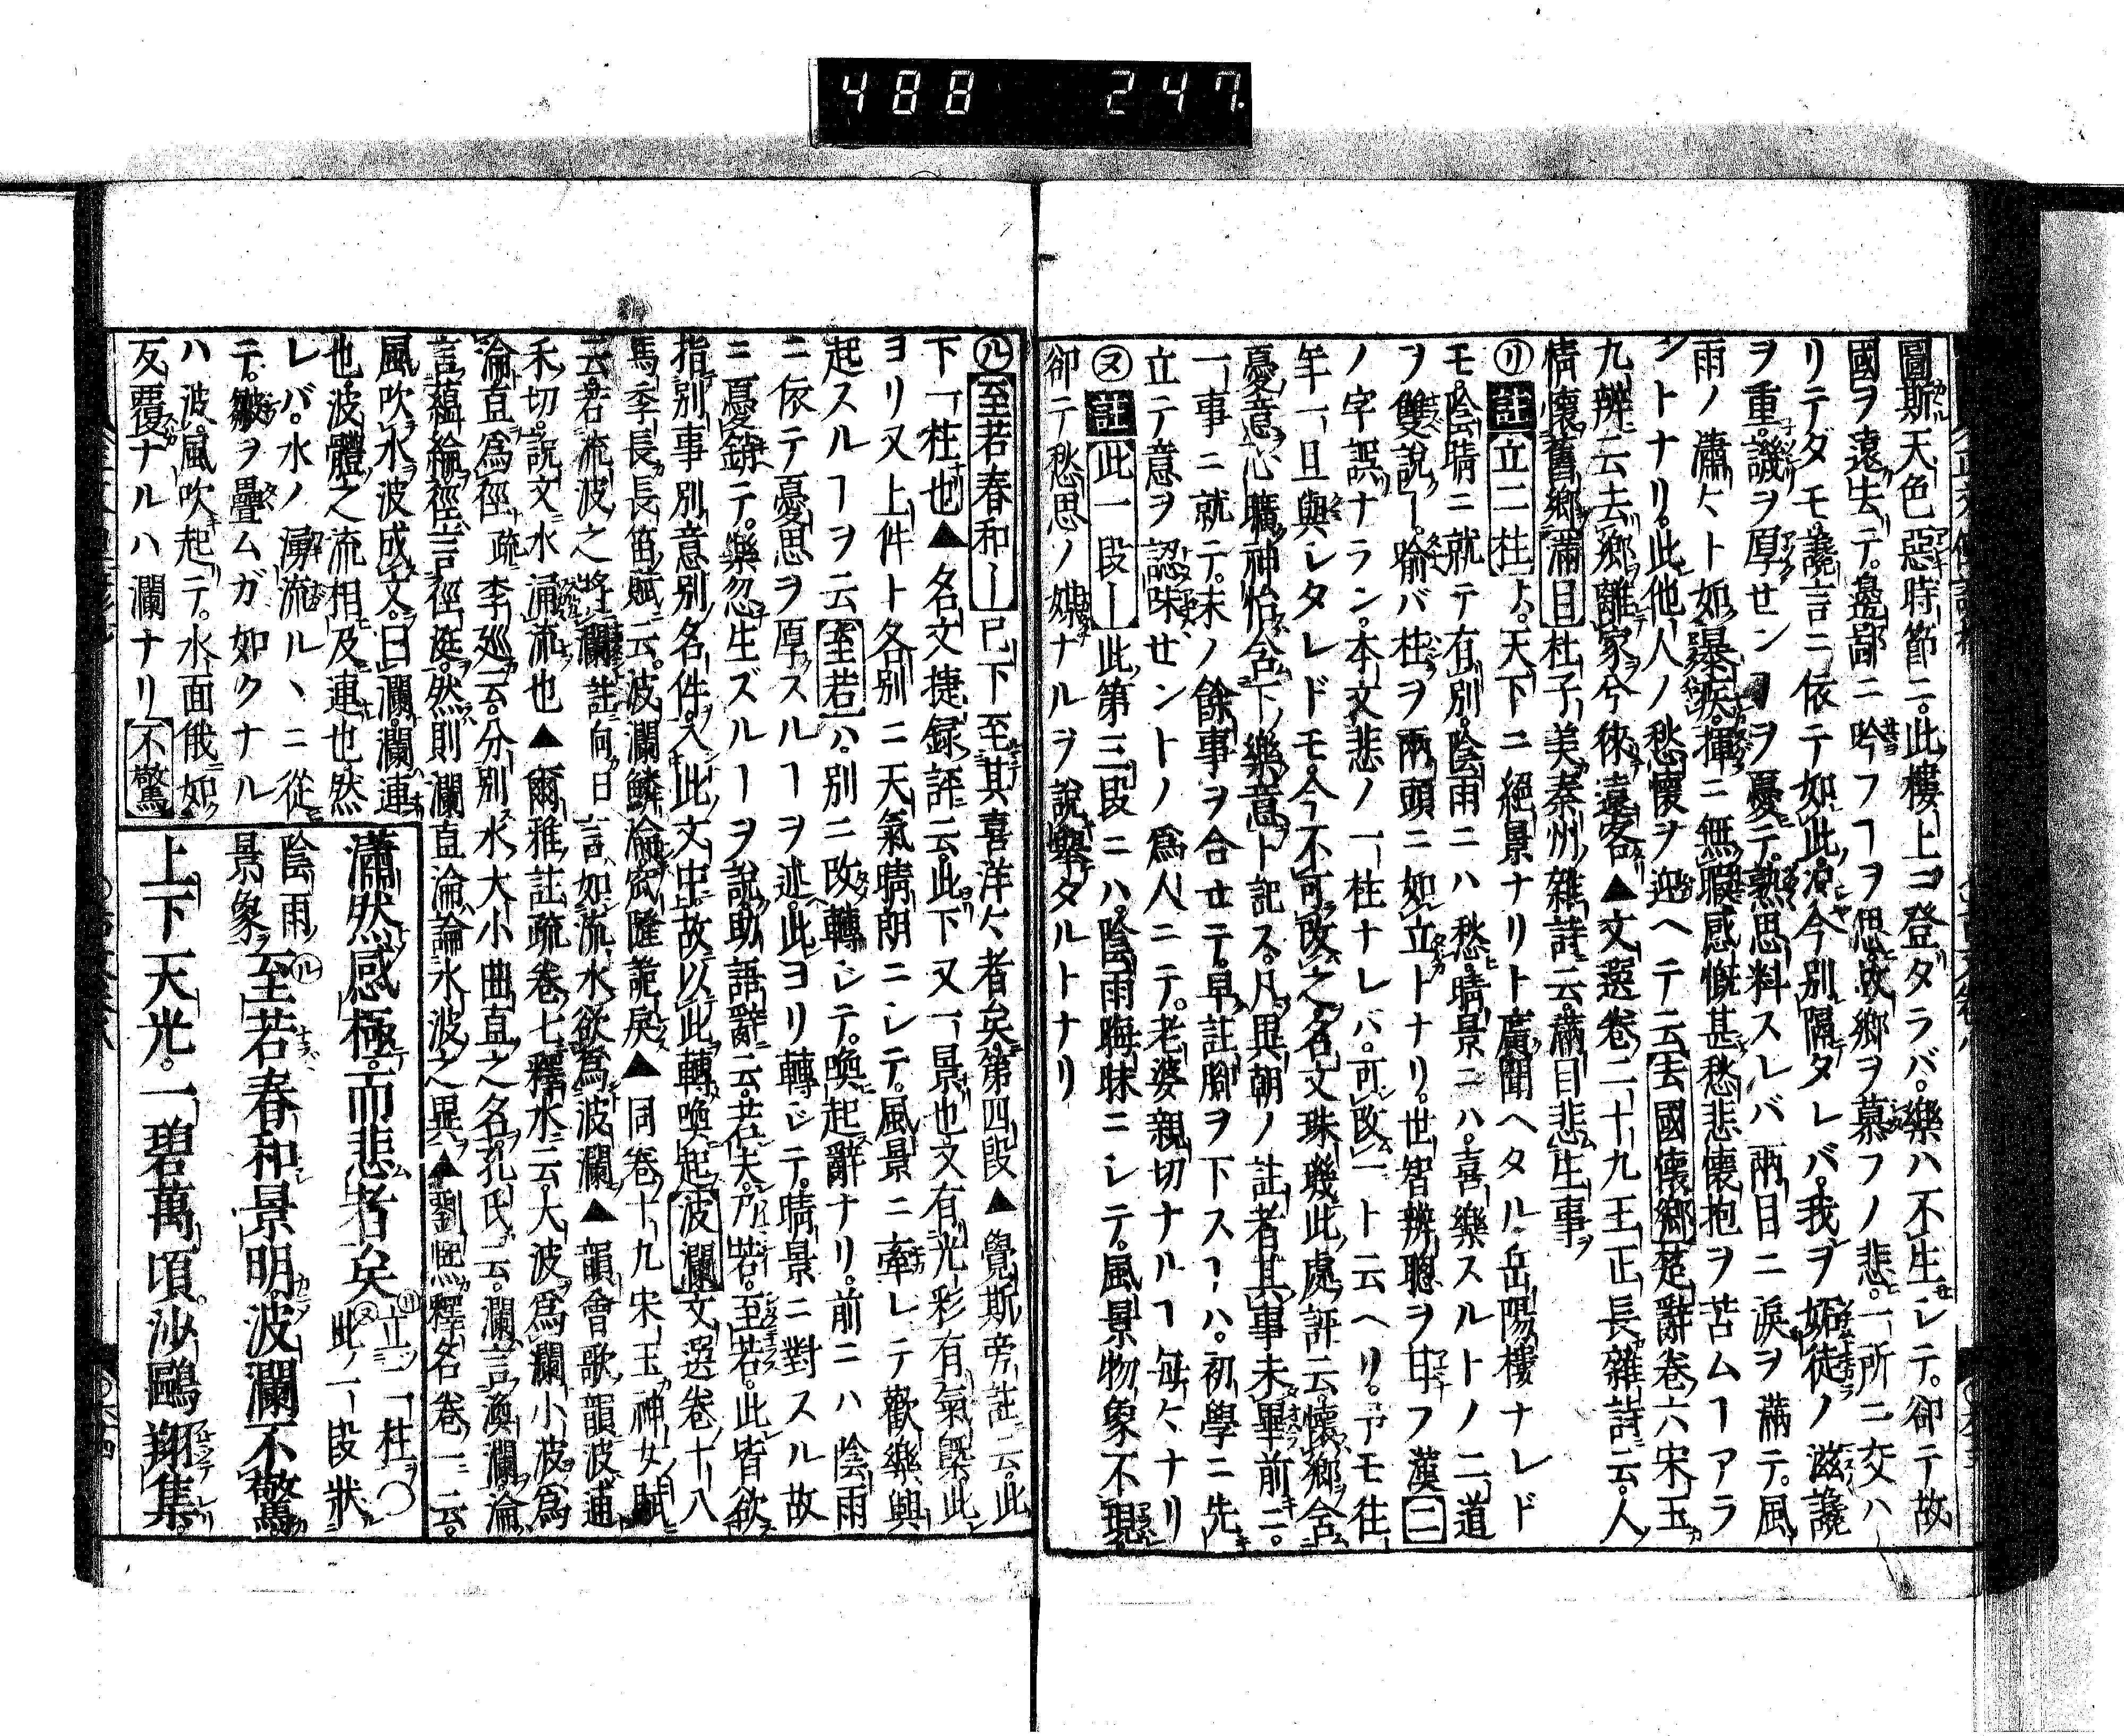 488 247
圖斯天色惡時節ニ此樓上ヨ登タラバ樂ハ不生シテ卻テ故
國ヲ遠去テ邊鄙ニ吟フヿヲ思故鄉ヲ慕フノ悲一所ニ交ハ
リテダモ讒言ニ依テ如此況今別隔タレバ我ヲ妬徒ノ滋讒
ヲ重譏ヲ厚センヿヲ憂テ熟思料スレバ兩目ニ淚ヲ滿テ風
雨ノ瀟々ト如暴疾揮ニ無暇感慨甚愁悲懷抱ヲ苦ムヿアラ
ントナリ此他人ノ愁懷ヲ迎ヘテ云去國懷鄉楚辭卷六宋玉
九辨云去鄉離家兮徠遠客▲文選卷二十九王正長雜詩云人
情懷舊鄉滿目杜子美秦州雜詩云滿目悲生事
㋷註立二柱上天下ニ絕景ナリト廣聞ヘタル岳陽樓ナレド
モ陰晴ニ就テ有別陰雨ニハ愁晴景ニハ喜樂スルトノ二道
ヲ雙說ヿ喻バ柱ヲ兩頭ニ如立トナリ世智辨聰ヲ甘フ漢二
ノ字誤ナラン本文悲ノ一柱ナレバ可改一ト云ヘリ予モ往
年一旦與シタレドモ今不可改之名文珠璣此處評云懷鄉含
憂意心曠神怡含下樂意ト記ス凡異朝ノ註者其事未畢前ニ
一事ニ就テ末ノ餘事ヲ合セテ早註腳ヲ下スヿハ初學ニ先
立テ意ヲ認味セントノ爲人ニテ老婆親切ナルヿ每々ナリ
㋦註此一段ー此第三段ニハ陰雨晦昧ニシテ風景物象不現
卻テ愁思ノ媒ナルヲ說擧タルトナリ
㋸至若春和ー已下至其喜洋々者矣第四段▲覺斯旁註云此
下一柱也▲名文捷録評云此下又一景也文有光彩有氣槩此
ヨリ又上件ト各別ニ天氣晴朗ニシテ風景ニ牽レテ歡樂興
起スルヿヲ云至若ハ別ニ改轉シテ喚起辭ナリ前ニハ陰雨
ニ依テ憂思ヲ厚スルヿヲ述此ヨリ轉ジテ晴景ニ對スル故
ニ憂銷テ樂忽生ズルヿヲ說助語辭云若夫乃若至若此皆欲
指別事別意別名件入此文中故以此轉喚起波瀾文選卷十八
馬季長長笛賦云波瀾鱗淪窊隆詭戾▲同卷十九宋玉神女賦
云若流波之將瀾註向曰言如流水欲爲波瀾▲韻會歌韻波逋
禾切說文水涌流也▲爾雅註疏卷七釋水云大波爲瀾小波爲
淪直爲徑疏李巡云分別水大小曲直之名孔氏云瀾言渙瀾淪
言蘊綸徑言徑涏然則瀾直淪論水波之異▲劉熈釋名卷一云
風吹水波成文曰瀾瀾連
也波體之流相及連也然
レバ水ノ湧流ルヽニ從
テ皺ヲ疊ムガ如クナル
ハ波風吹起テ水面俄如
反覆ナルハ瀾ナリ不驚
瀟然感極而悲者矣㋷立二一柱〇㋦此一段狀
陰雨景象㋸至若春和景明波瀾不驚
上下天光一碧萬頃沙鷗翔集